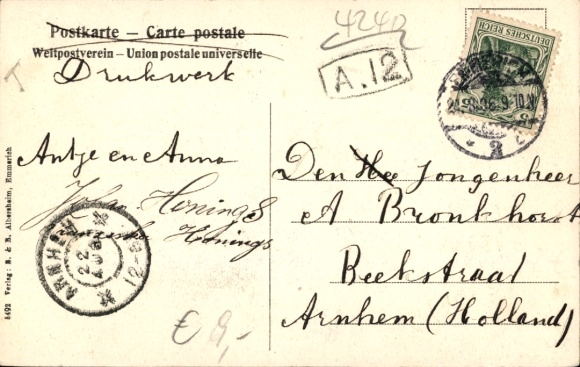 Postkarte — Carte postale
Weltpostverein – Union postale universelle
Drukwerk
4240
A.12
DEUTSCHES REICH
Antje en Anna
Honings
Honings
ARNHEM
22
12-
Den Jongenheer
A Bronkhorst
Beekstraat
Arnhem (Holland)
€ 9,-
6492 Verlag: R. & R. Albersheim, Emmerich